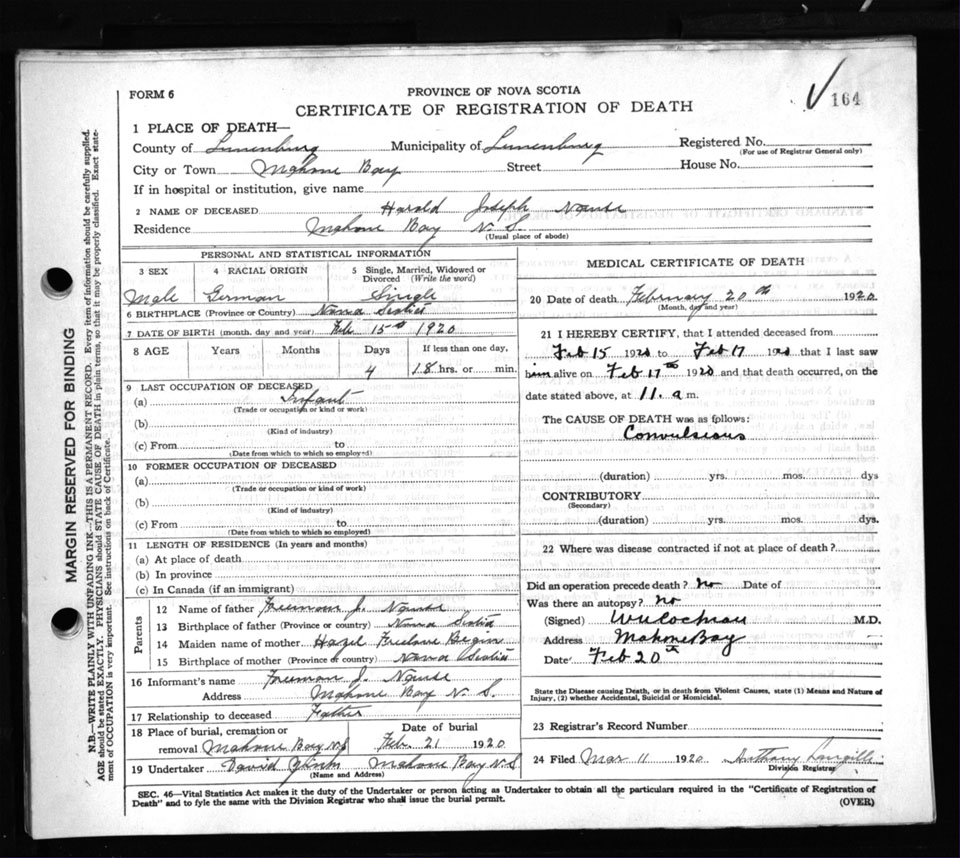 FORM 6
PROVINCE OF NOVA SCOTIA
CERTIFICATE OF REGISTRATION OF DEATH
164
1 PLACE OF DEATH—
County of Lunenburg Municipality of Lunenburg Registered No.
(For use of Registrar General only)
City or Town Mahone Bay Street House No.
If in hospital or institution, give name
2 NAME OF DECEASED Harold Joseph
Residence Mahone Bay N. S.
(Usual place of abode)
PERSONAL AND STATISTICAL INFORMATION
3 SEX 4 RACIAL ORIGIN 5 Single, Married, Widowed or Divorced (Write the word)
Male German Single
6 BIRTHPLACE (Province or Country) Nova Scotia
7 DATE OF BIRTH (month, day and year) Feb. 15th 1920
8 AGE Years Months Days If less than one day,
4 18 hrs. or min.
9 LAST OCCUPATION OF DECEASED
(a) Infant
(Trade or occupation or kind or work)
(b)
(Kind of industry)
(c) From to
(Date from which to which so employed)
10 FORMER OCCUPATION OF DECEASED
(a)
(Trade or occupation or kind of work)
(b)
(Kind of industry)
(c) From to
(Date from which to which so employed)
11 LENGTH OF RESIDENCE (In years and months)
(a) At place of death
(b) In province
(c) In Canada (if an immigrant)
Parents
12 Name of father Freeman J.
13 Birthplace of father (Province or country) Nova Scotia
14 Maiden name of mother Hazel Freelove Begin
15 Birthplace of mother (Province or country) Nova Scotia
16 Informant's name Freeman J.
Address Mahone Bay N. S.
17 Relationship to deceased Father
18 Place of burial, cremation or Date of burial
removal Mahone Bay N.S Feb. 21 1920
19 Undertaker David Mahone Bay N.S
(Name and Address)
MEDICAL CERTIFICATE OF DEATH
20 Date of death February 20th 1920
(Month, day and year)
21 I HEREBY CERTIFY, that I attended deceased from
Feb 15 1920 to Feb 17 1920 that I last saw
him alive on Feb 17th 1920 and that death occurred, on the
date stated above, at 11. a m.
The CAUSE OF DEATH was as follows:
Convulsions
(duration) yrs. mos. dys
CONTRIBUTORY
(Secondary)
(duration) yrs. mos. dys.
22 Where was disease contracted if not at place of death?
Did an operation precede death? No Date of
Was there an autopsy? No
(Signed) M.D.
Address Mahone Bay
Date Feb 20th
State the Disease causing Death, or in death from Violent Causes, state (1) Means and Nature of
Injury, (2) whether Accidental, Suicidal or Homicidal.
23 Registrar's Record Number
24 Filed Mar 11 1920 Anthony Langille
Division Registrar
SEC. 46—Vital Statistics Act makes it the duty of the Undertaker or person acting as Undertaker to obtain all the particulars required in the "Certificate of Registration of
Death" and to fyle the same with the Division Registrar who shall issue the burial permit.
(OVER)
MARGIN RESERVED FOR BINDING
N.B.—WRITE PLAINLY WITH UNFADING INK—THIS IS A PERMANENT RECORD. Every item of information should be carefully supplied.
AGE should be stated EXACTLY. PHYSICIANS should STATE CAUSE OF DEATH in plain terms, so that it may be properly classified. Exact state-
ment of OCCUPATION is very important. See instructions on back of Certificate.